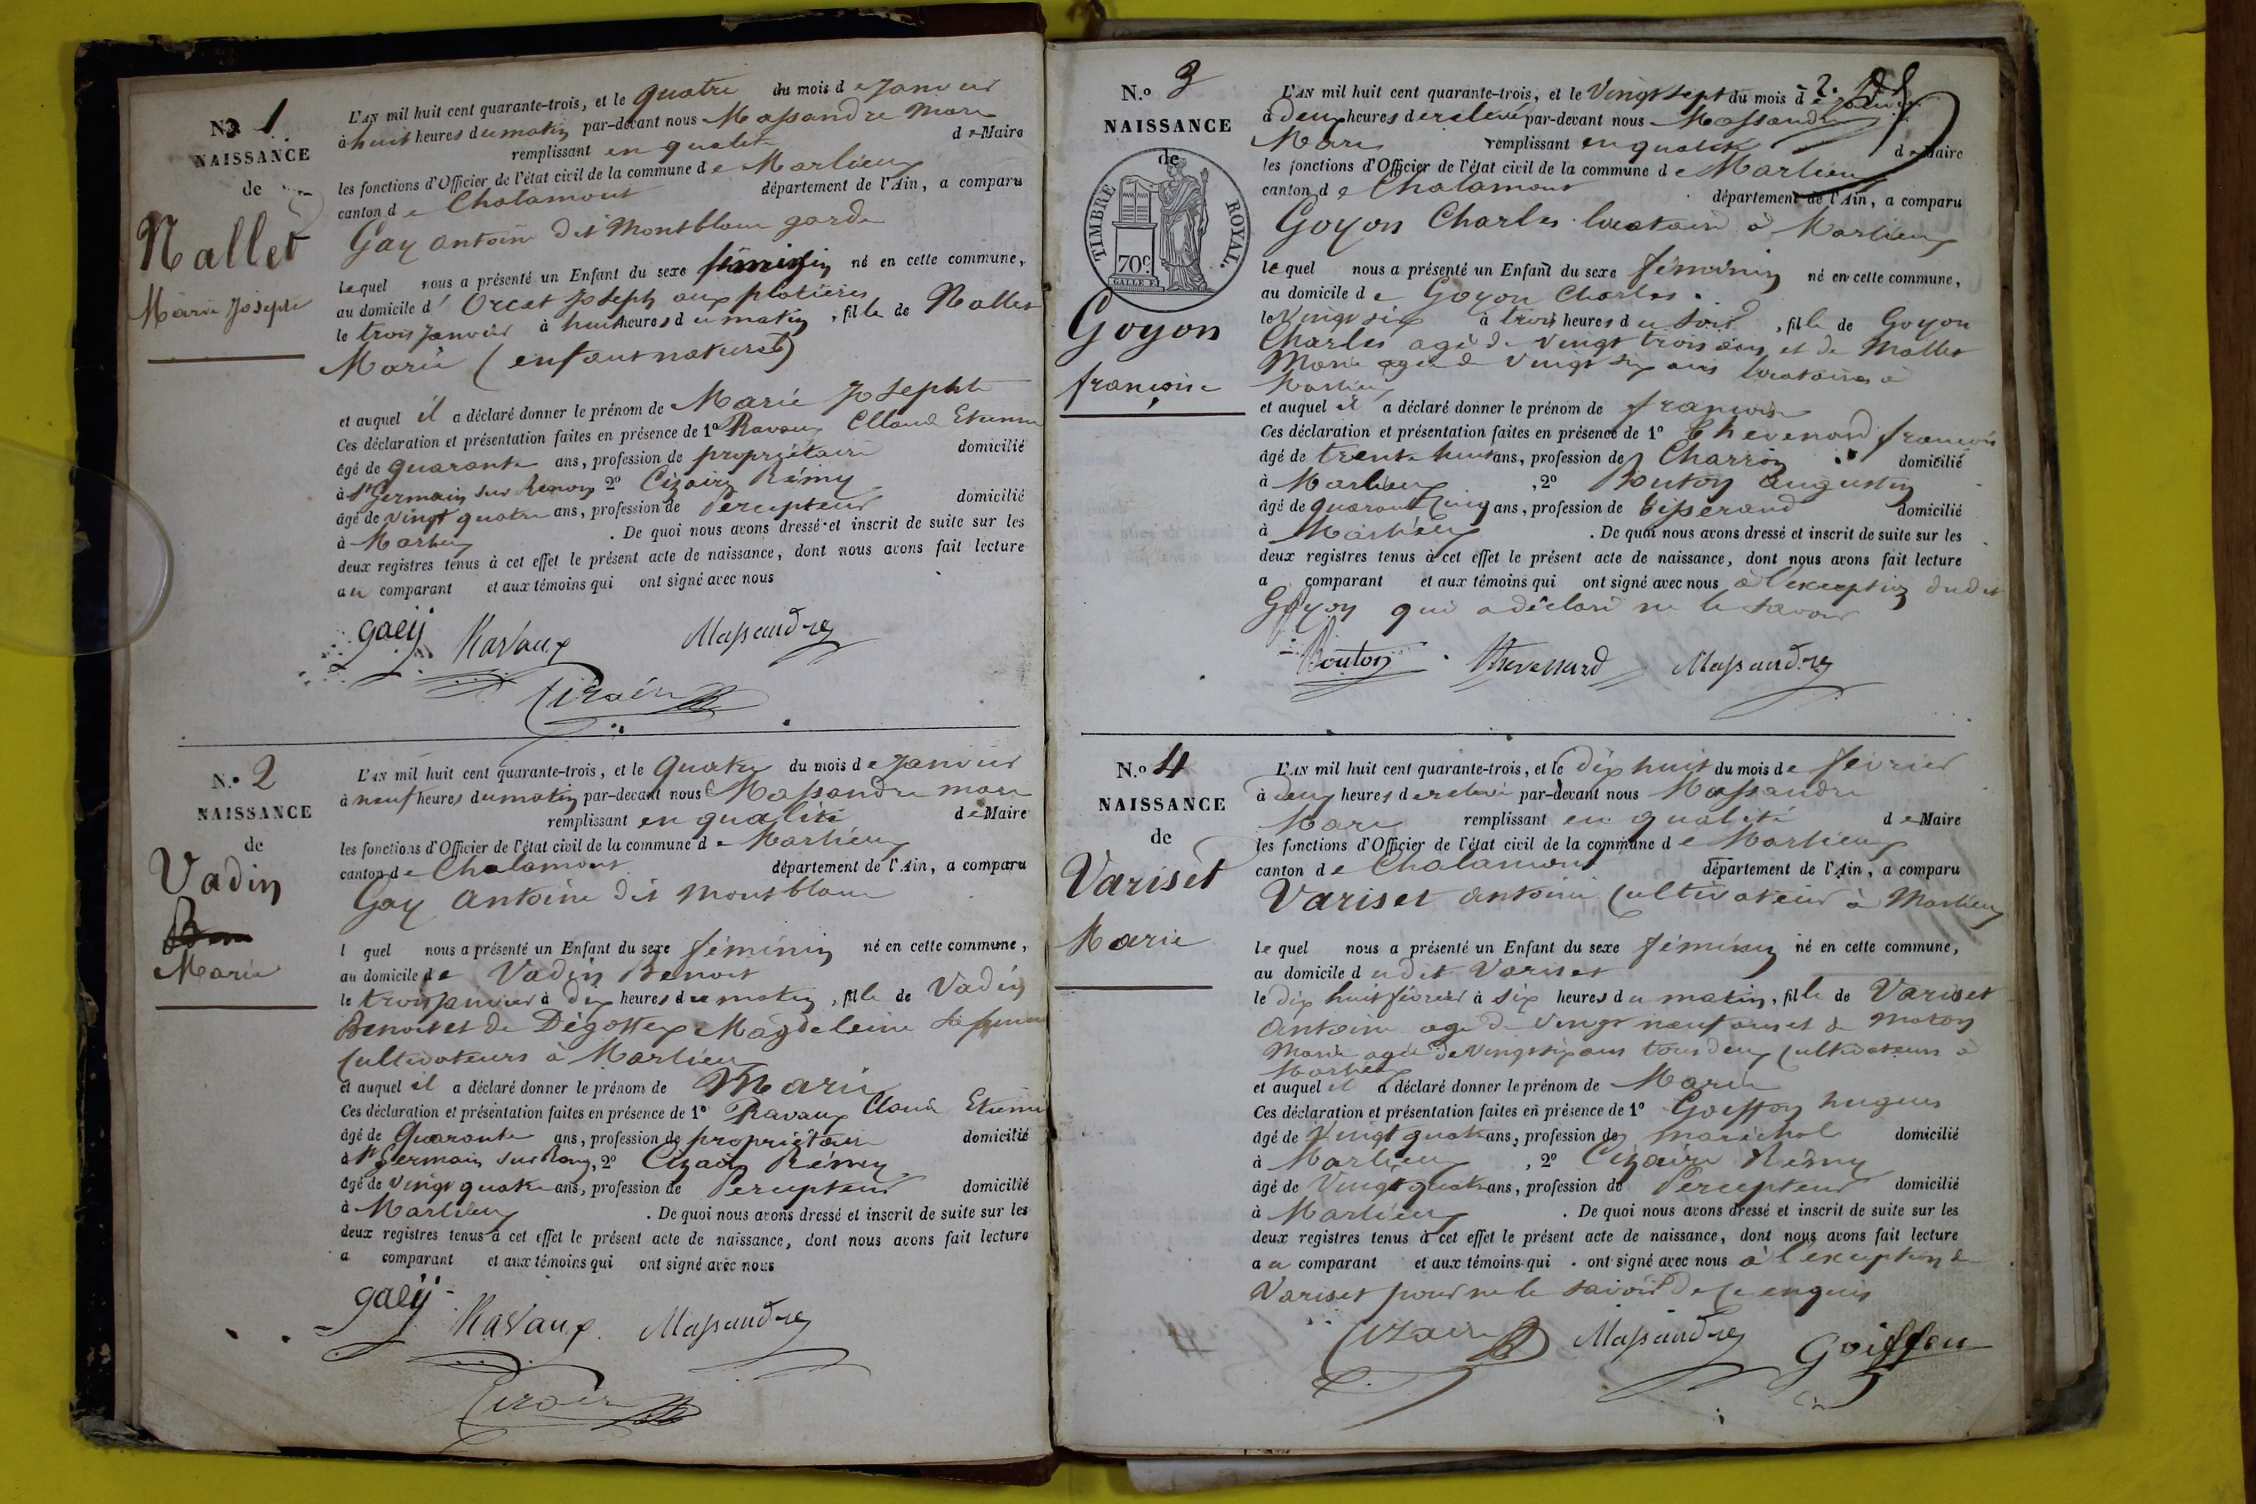 N.o 1
NAISSANCE
de
Nallet
Marie Josephe
L'AN mil huit cent quarante-trois, et le quatre du mois de Janvier
à huit heures du matin par-devant nous Massandre Marc
remplissant en qualité de Maire
les fonctions d'Officier de l'état civil de la commune de Marlieux
canton de Chalamont département de l'Ain, a comparu
Gay antoine dit Montblanc garde
lequel nous a présenté un Enfant du sexe féminin né en cette commune,
au domicile d' Orcet Joseph aux platières
le trois Janvier à huit heures du matin, fille de Nallet
Marie (enfant naturel)
et auquel il a déclaré donner le prénom de Marie Josephte
Ces déclaration et présentation faites en présence de 1o Ravaux Claude Etienne
âgé de quarante ans, profession de propriétaire domicilié
à St Germain sur Renon 2o Cizaire Rémy
âgé de vingt quatre ans, profession de Percepteur domicilié
à Marlieux . De quoi nous avons dressé et inscrit de suite sur les
deux registres tenus à cet effet le présent acte de naissance, dont nous avons fait lecture
au comparant et aux témoins qui ont signé avec nous
gaëÿ Ravaux Massandre
Cizaire
N.o 2
NAISSANCE
de
Vadin
Marie
L'AN mil huit cent quarante-trois, et le quatre du mois de Janvier
à neuf heures du matin par-devant nous Massandre marc
remplissant en qualité de Maire
les fonctions d'Officier de l'état civil de la commune de Marlieux
canton de Chalamont département de l'Ain, a comparu
Gay Antoine dit Montblanc
l quel nous a présenté un Enfant du sexe féminin né en cette commune,
au domicile de Vadin Benoit
le trois Janvier à dix heures du matin, fille de Vadin
Benoit et de Dégottex Magdeleine sa femme
Cultivateurs à Marlieux
et auquel il a déclaré donner le prénom de Marie
Ces déclaration et présentation faites en présence de 1o Ravaux Claude Etienne
âgé de Quarante ans, profession de propriétaire domicilié
à St Germain sur Renon, 2o Cizaire Rémy
âgé de vingt quatre ans, profession de Percepteur domicilié
à Marlieux . De quoi nous avons dressé et inscrit de suite sur les
deux registres tenus à cet effet le présent acte de naissance, dont nous avons fait lecture
a comparant et aux témoins qui ont signé avec nous
gaëÿ Ravaux Massandre
Cizaire
N.o 3
NAISSANCE
de
TIMBRE ROYAL.
70c.
GALLE F.
Goyon
françoise
L'AN mil huit cent quarante-trois, et le Vingt sept du mois de Janvier
à deux heures de relevé par-devant nous Massandre
Marc remplissant en qualité de Maire
les fonctions d'Officier de l'état civil de la commune de Marlieux
canton de Chalamont département de l'Ain, a comparu
Goyon Charles locataire à Marlieux
lequel nous a présenté un Enfant du sexe féminin né en cette commune,
au domicile de Goyon Charles.
le Vingt six à trois heures du soir, fille de Goyon
Charles agé de vingt trois ans et de Mallet
Marie agée de vingt six ans locataires à
Marlieux
et auquel il a déclaré donner le prénom de françoise
Ces déclaration et présentation faites en présence de 1o Thevenard françois
âgé de trente huit ans, profession de Charron domicilié
à Marlieux, 2o Bouton Augustin
âgé de quarante cinq ans, profession de tisserand domicilié
à Marlieux . De quoi nous avons dressé et inscrit de suite sur les
deux registres tenus à cet effet le présent acte de naissance, dont nous avons fait lecture
a comparant et aux témoins qui ont signé avec nous à l'exception dudit
Goyon qui a déclaré ne le savoir
Bouton Thevenard Massandre
N.o 4
NAISSANCE
de
Variset
Marie
L'AN mil huit cent quarante-trois, et le dix huit du mois de février
à deux heures de relevé par-devant nous Massandre
Marc remplissant en qualité de Maire
les fonctions d'Officier de l'état civil de la commune de Marlieux
canton de Chalamont département de l'Ain, a comparu
Variset antoine Cultivateur à Marlieux
lequel nous a présenté un Enfant du sexe féminin né en cette commune,
au domicile dudit Variset
le dix huit février à six heures du matin, fille de Variset
Antoine agé de vingt neuf ans et de Moton
Marie agée de vingt six ans tous deux Cultivateurs à
Marlieux
et auquel il a déclaré donner le prénom de Marie
Ces déclaration et présentation faites en présence de 1o Goiffon hugues
âgé de Vingt quatre ans, profession de maréchal domicilié
à Marlieux, 2o Cizaire Rémy
âgé de Vingt quatre ans, profession de Percepteur domicilié
à Marlieux . De quoi nous avons dressé et inscrit de suite sur les
deux registres tenus à cet effet le présent acte de naissance, dont nous avons fait lecture
au comparant et aux témoins qui ont signé avec nous à l'exception de
Variset pour ne le savoir de ce enquis
Cizaire Massandre Goiffon